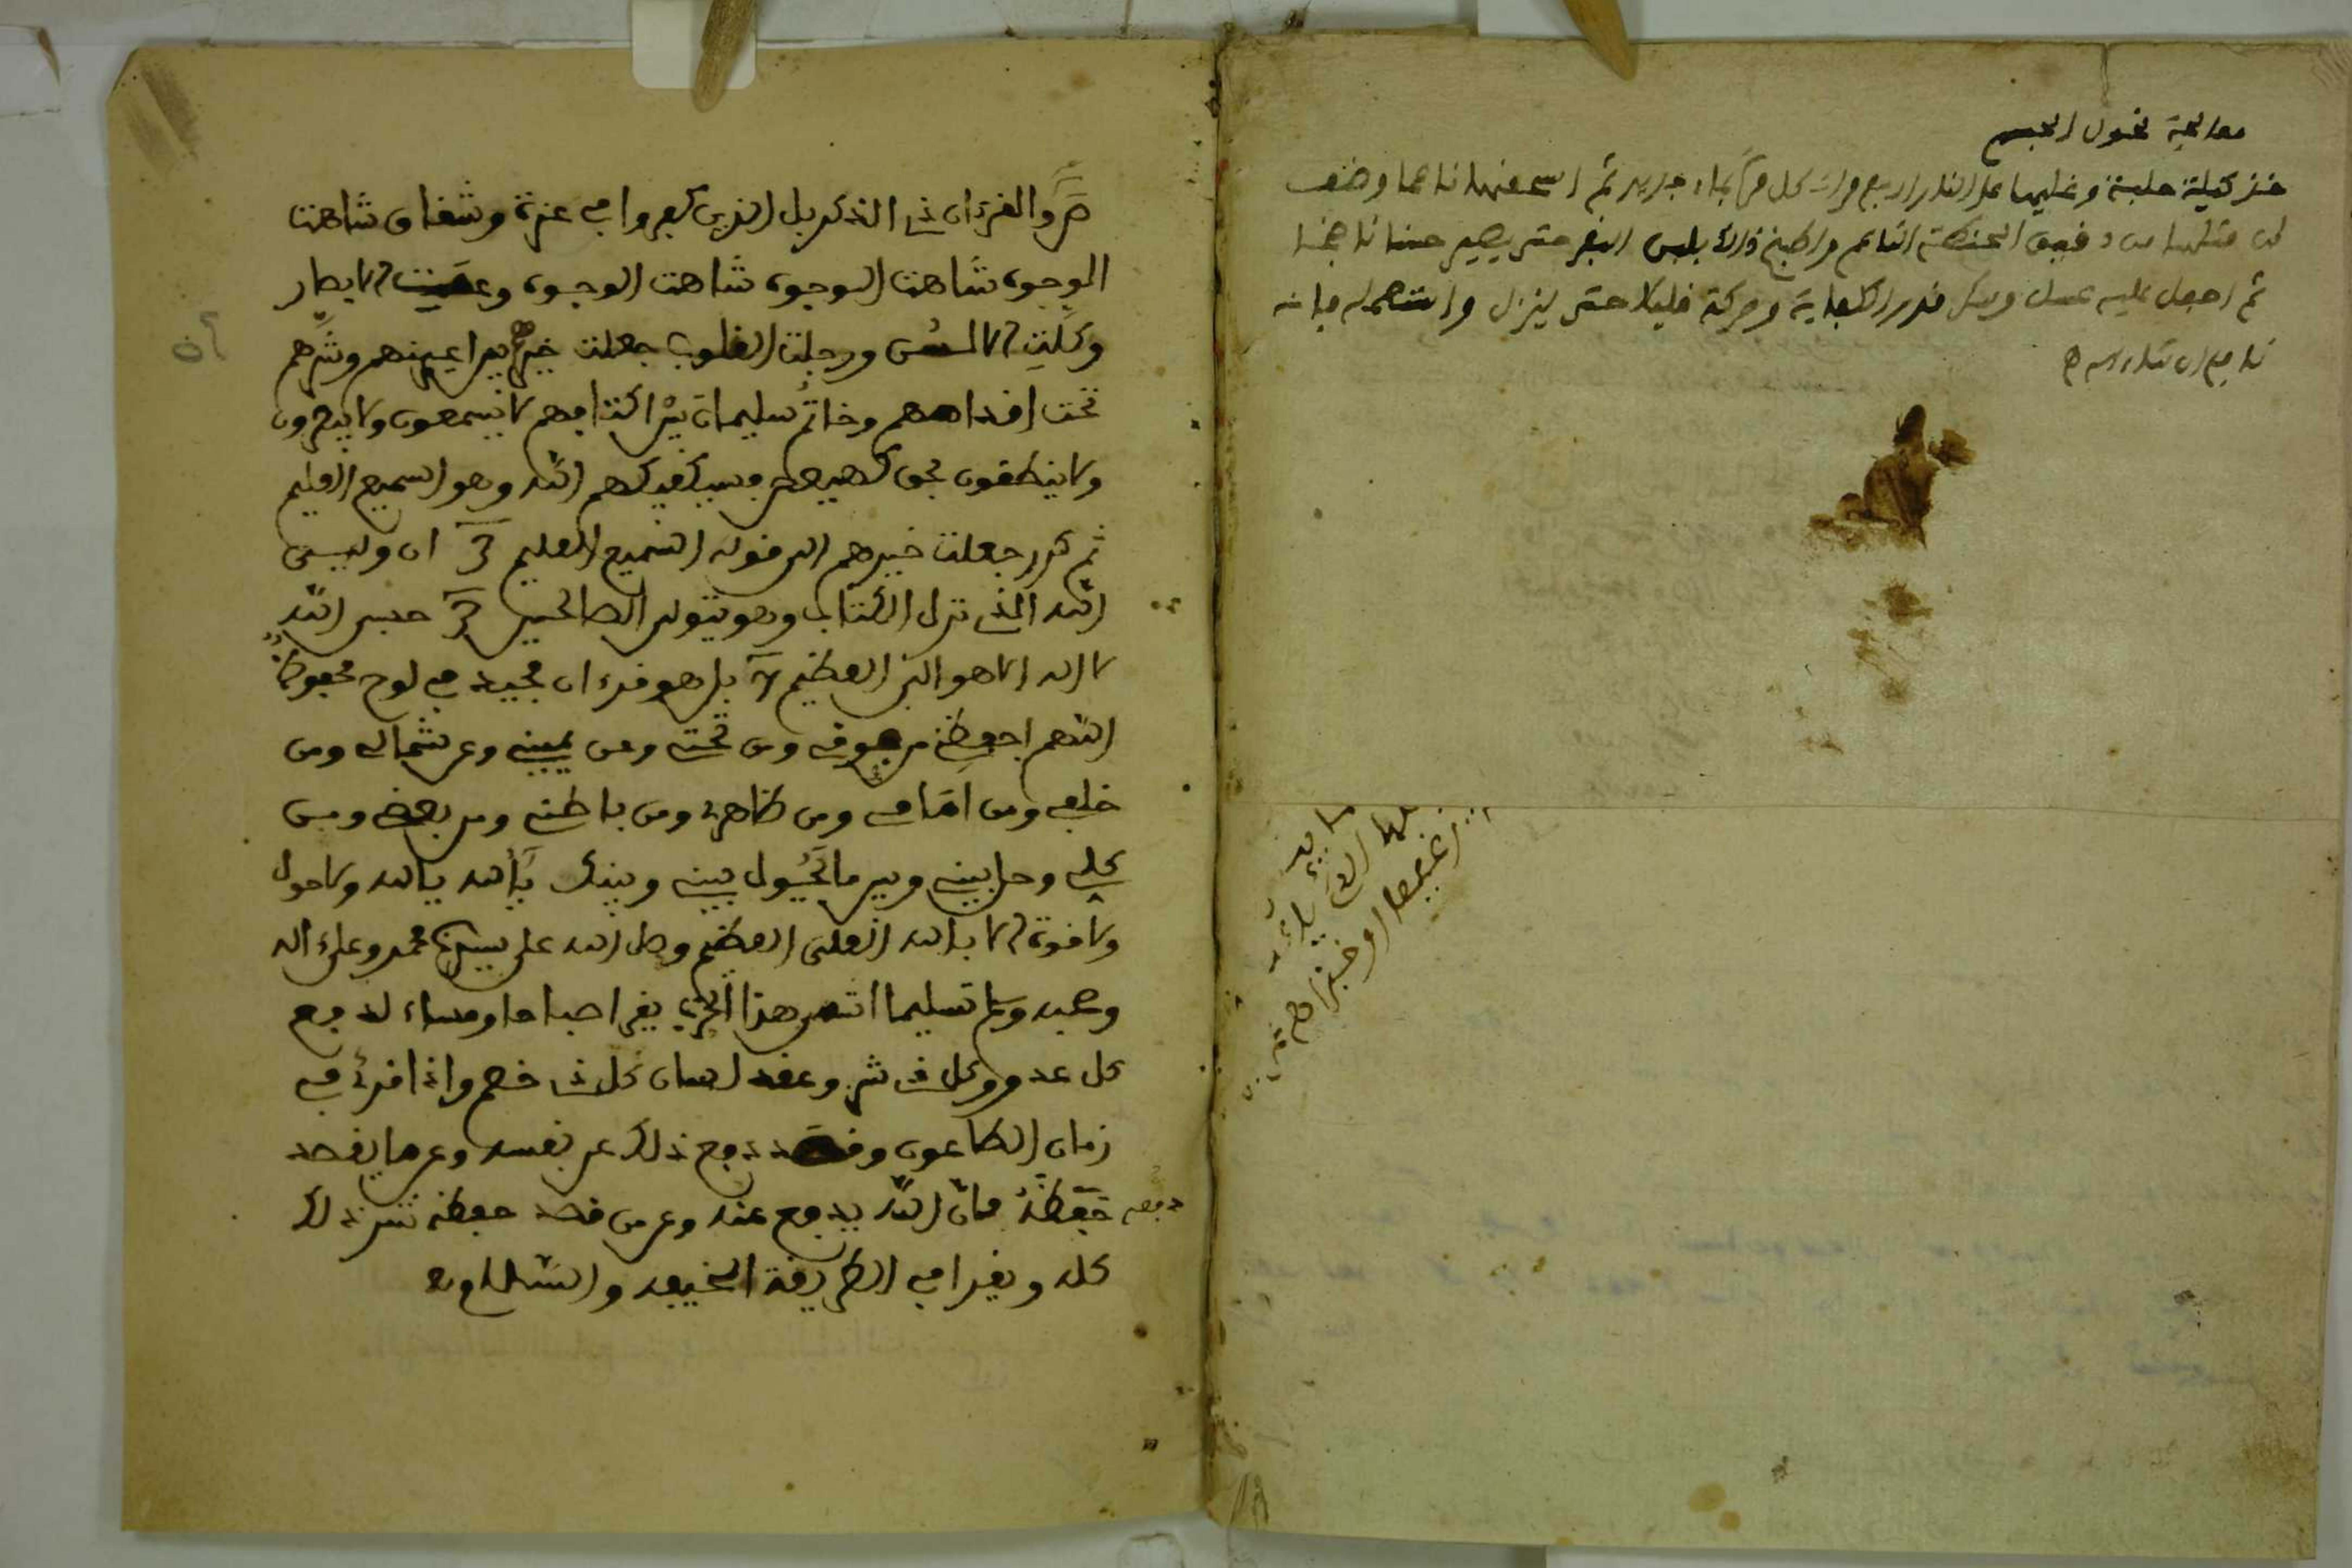 معالجة نحول الجسم
خذ كيلة حلبة وغليها على النار اربع مرات كل مرة بماء جديد ثم اسحقها ناعما وضف
لها مثلها من دقيق الحنطة الناعم واطبخ ذالك بلبن البقر حتى يصير حسنا ناضجا
ثم اجعل عليه عسل وسكر قدر الكفاية وحركه قليلا حتى ينزل واستعمله فانه
نافع ان شاء الله
صٓ والقرءان ذى الذكر بل الذين كفروا في عزة وشقاق شاهت
الوجوه شاهت الوجوه شاهت الوجوه وعميت الابصار
وكلت الالسن ووجلت القلوب جعلت خيرهم بين اعينهم وشرهم
تحت اقدامهم وخاتم سليمان بين اكتافهم لا يسمعون ولا يبصرون
ولا ينطقون بحق كهيعص فسيكفيكهم الله وهو السميع العليم
ثم كرر جعلت خيرهم الى قوله السميع العليم 3 ان وليى
الله الذى نزل الكتاب وهو يتولى الصالحين 3 حسبى الله
لا اله الا هو الى العظيم 7 بل هو قرءان مجيد في لوح محفوظ
اللهم احفظنى من فوقى ومن تحتى وعن يمينى وعن شمالى ومن
خلفى ومن امامى ومن ظاهرى ومن باطنى ومن بعضى ومن
كلى وحل بينى وبين ما يحول بينى وبينك يا الله يا الله ولا حول
ولا قوة الا بالله العلى العظيم وصلى الله على سيدنا محمد وعلى اله
وصحبه وسلم تسليما انتهى هذا الحزب يقرا صباحا ومساء لدفع
كل عدو وكل ذى شر وعقد لسان كل ذى خصم واذا قرئ في
زمان الطاعون وقصد دفع ذلك عن نفسه وعن ما يقصد
حفظه فان الله يدفع عنه وعن من قصد حفظه شر ذلك
كله ويقرا في الطريق المخيفه والسلام